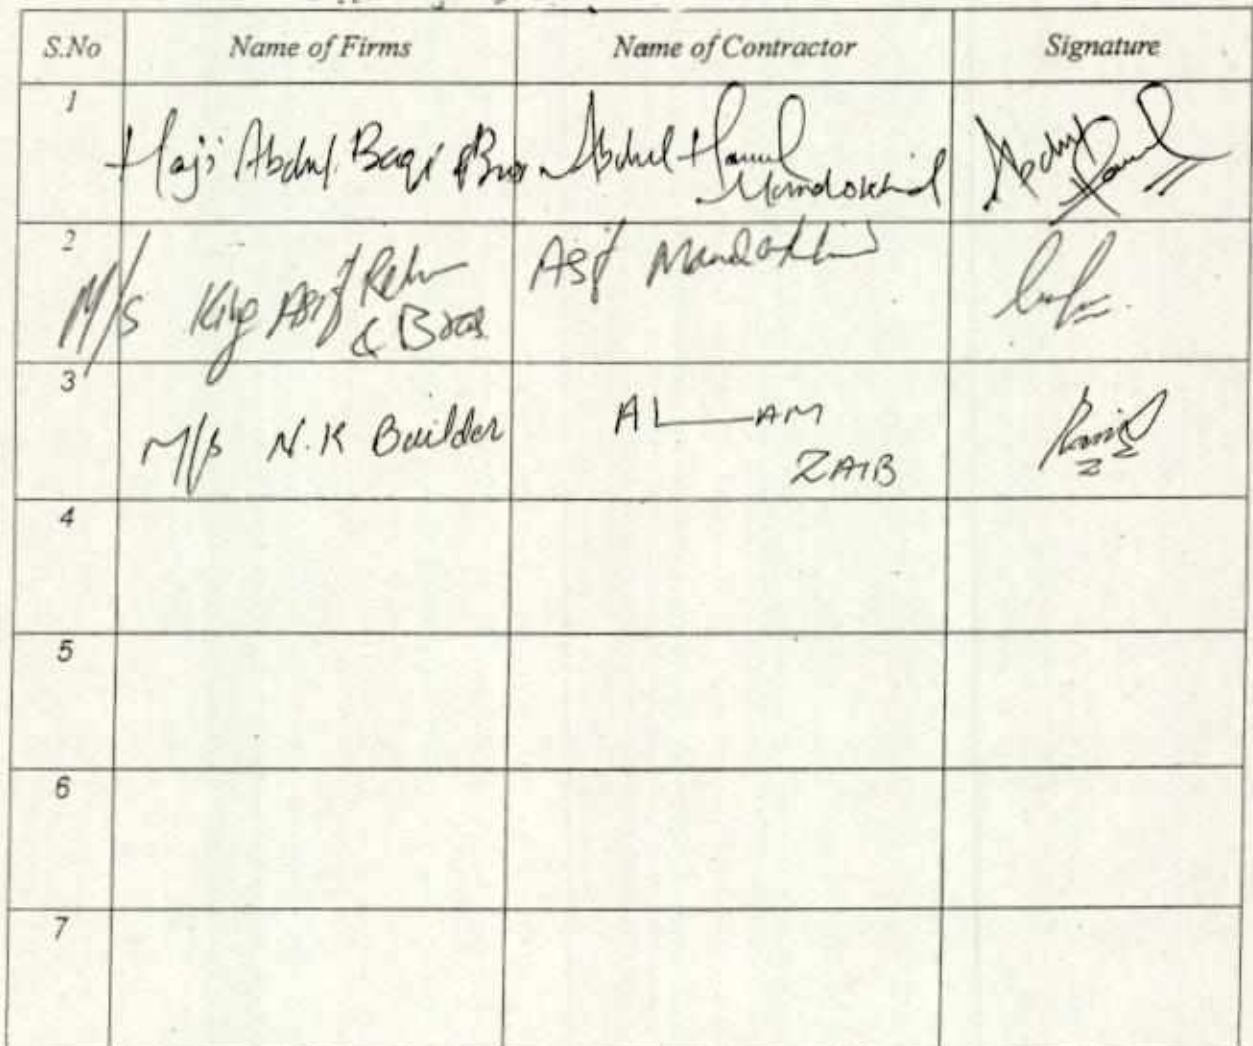 S.No Name of Firms Name of Contractor Signature
1
Haji Abdul Baqi & Bros Abdul
Mandokhail
2
M/s King Asif & Bros Asif Mandokhail
3
M/s N.K Builder ALAM
ZAIB
4
5
6
7